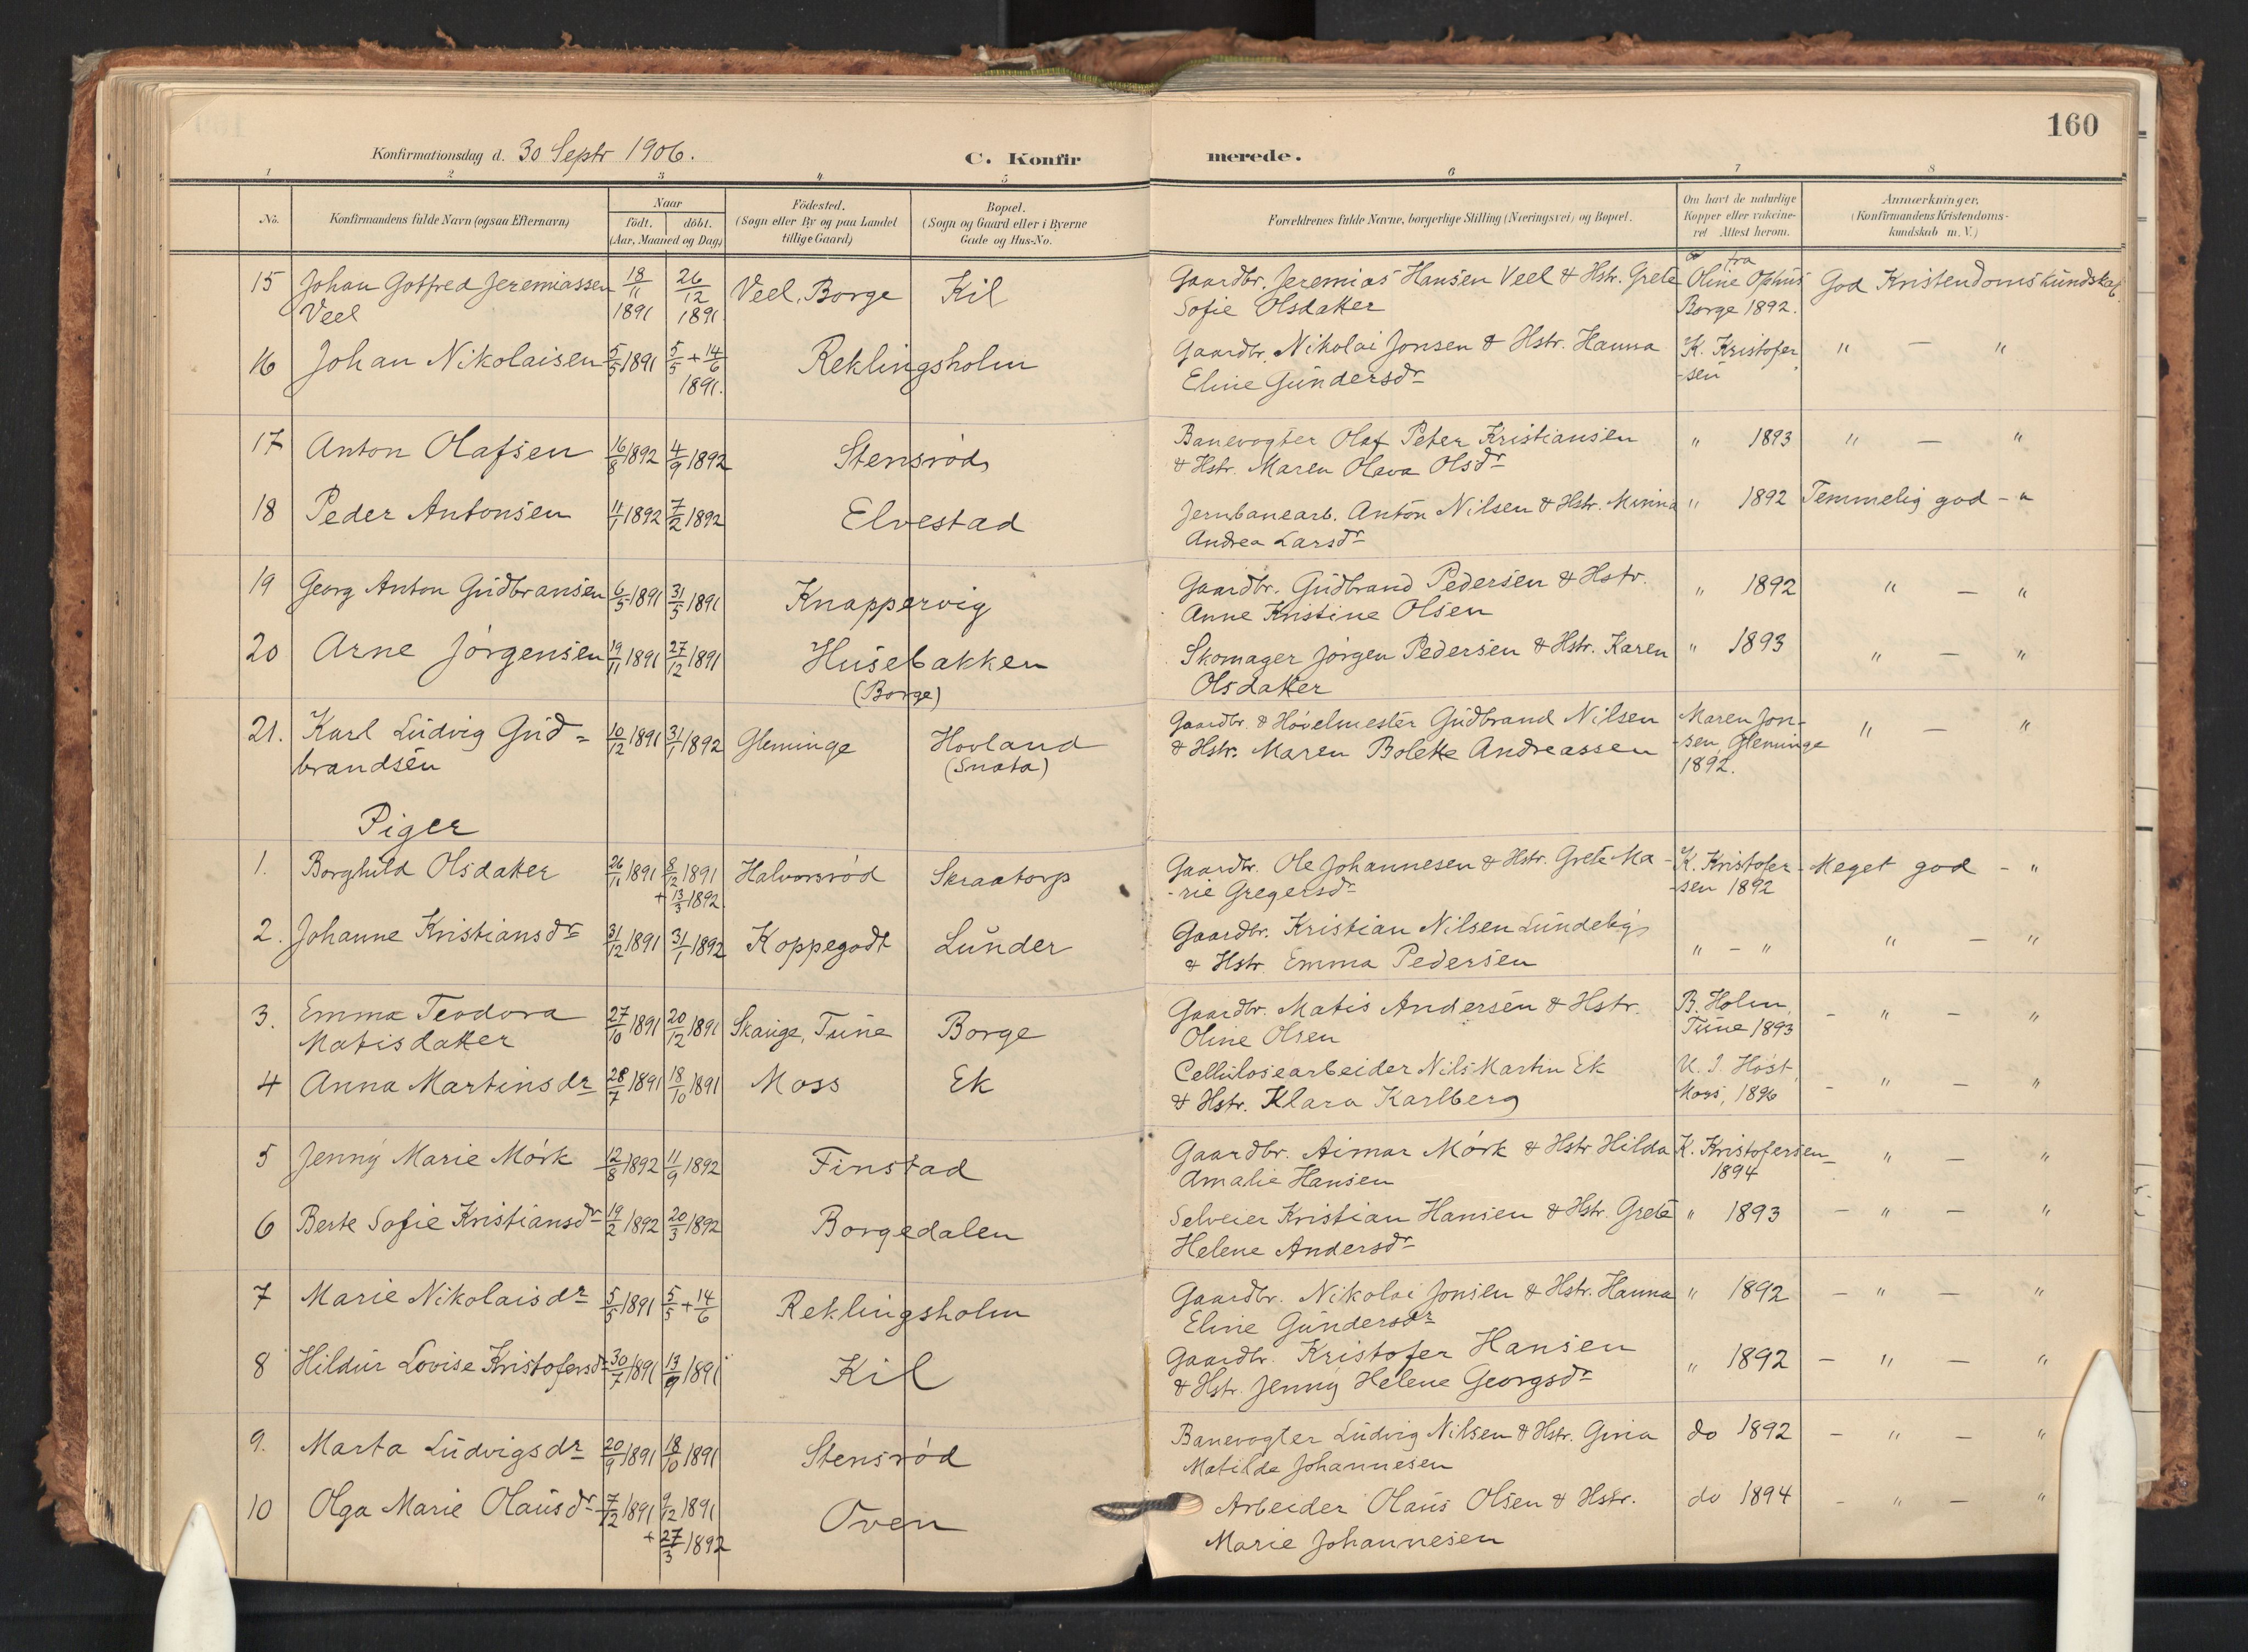 160
Konfirmationsdag d. 30 Septr 1906.
C. Konfir
merede.
1 2 3 4 5 6 7 8
No.
Konfirmandens fulde Navn (ogsaa Efternavn)
Naar
født. døbt.
(Aar, Maaned og Dag)
Fødested.
(Sogn eller By og paa Landet
tillige Gaard)
Bopæl.
(Sogn og Gaard eller i Byerne
Gade og Hus-No.
Forældrenes fulde Navne, borgerlige Stilling (Næringsvei) og Bopæl.
Om havt de naturlige
Kopper eller vakcine-
ret Attest herom.
Anmærkninger.
(Konfirmandens Kristendoms-
kundskab m. V.)
15 Johan Gotfred Jeremiassen 18/11 26/12 Veel, Borge Kil Gaardbr. Jeremias Hansen Veel & Hstr. Grete fra Oline Ophus God Kristendomskundskab
Veel 1891 1891. Sofie Olsdatter Borge 1892.
16 Johan Nikolaisen 5/5 1891 5/5 + 14/6 Reklingsholm Gaardbr. Nikolai Jonsen & Hstr. Hanna K. Kristofer " — "
1891. Eline Gundersdr -sen "
17 Anton Olafsen 16/8 1892 4/9 1892 Stensrød Banevogter Olaf Peter Kristiansen " 1893 " — "
& Hstr. Maren Olava Olsdr
18 Peder Antonsen 11/1 1892 7/2 1892 Elvestad Jernbanearb. Anton Nilsen & Hstr. Minna " 1892 Temmelig god - "
Andrea Larsdr
19 Georg Anton Gudbransen 6/5 1891 31/5 1891 Knappervig Gaardbr. Gudbrand Pedersen & Hstr. " 1892 " — "
Anne Kristine Olsen
20 Arne Jørgensen 19/11 1891 27/12 1891 Husebakken Skomager Jørgen Pedersen & Hstr. Karen " 1893 " — "
(Borge) Olsdatter
21. Karl Ludvig Gud= 10/12 1891 31/1 1892 Gleminge Hovland Gaardbr. & Høvelmester Gudbrand Nilsen Maren Jon- " — "
brandsen (Snata) & Hstr. Maren Bolette Andreassen -sen, Gleminge
1892.
Piger
1. Borghild Olsdatter 26/11 1891 8/12 1891 Halvorsrød Skraatorp Gaardbr. Ole Johannesen & Hstr. Grete Ma- K. Kristofer- Meget god - "
+ 13/3 1892. -rie Gregersdr -sen 1892
2. Johanne Kristiansdr 31/12 1891 31/1 1892 Koppegodt Lunder Gaardbr. Kristian Nilsen Lundeby " - " " — "
& Hstr. Emma Pedersen
3. Emma Teodora 27/10 1891 20/12 1891 Skauge, Tune Borge Gaardbr. Matis Andersen & Hstr. B. Holm, - " — "
Matisdatter Oline Olsen Tune 1893
4 Anna Martinsdr 28/7 1891 18/10 1891 Moss Ek Cellulosearbeider Nils Martin Ek Høst, - " — "
& Hstr. Klara Karlberg Moss, 1896
5 Jenny Marie Mørk 12/8 1892 11/9 1892 Finstad Gaardbr. Aimar Mørk & Hstr Hilda K. Kristofersen - " — "
Amalie Hansen 1894
6 Berte Sofie Kristiansdr 19/2 1892 20/3 1892 Borgedalen Selveier Kristian Hansen & Hstr. Grete " 1893 - " — "
Helene Andersdr
7 Marie Nikolaisdr 5/5 1891 5/5 + 14/6 Reklingsholm Gaardbr. Nikolai Jonsen & Hstr. Hanna " 1892 - " — "
Eline Gundersdr
8 Hildur Lovise Kristofersdr 30/7 1891 13/9 1891 Kil Gaardbr. Kristofer Hansen " 1892 - " — "
& Hstr. Jenny Helene Georgsdr
9. Marta Ludvigsdr 20/9 1891 18/10 1891 Stensrød Banevogter Ludvig Nilsen & Hstr. Gina do 1892 - " — "
Matilde Johannesen
10 Olga Marie Olausdr 7/12 1891 9/12 1891 Oven Arbeider Olaus Olsen & Hstr. do 1894 - " — "
+ 27/3 1892 Marie Johannesen